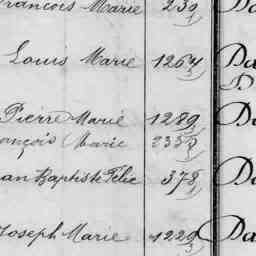 François Marie 239 Da
Louis Marie 1264 Da
D
Pierre Marie 1289 Da
François Marie 2358
Jean Baptiste Felix 378 Da
Joseph Marie 1229 Da